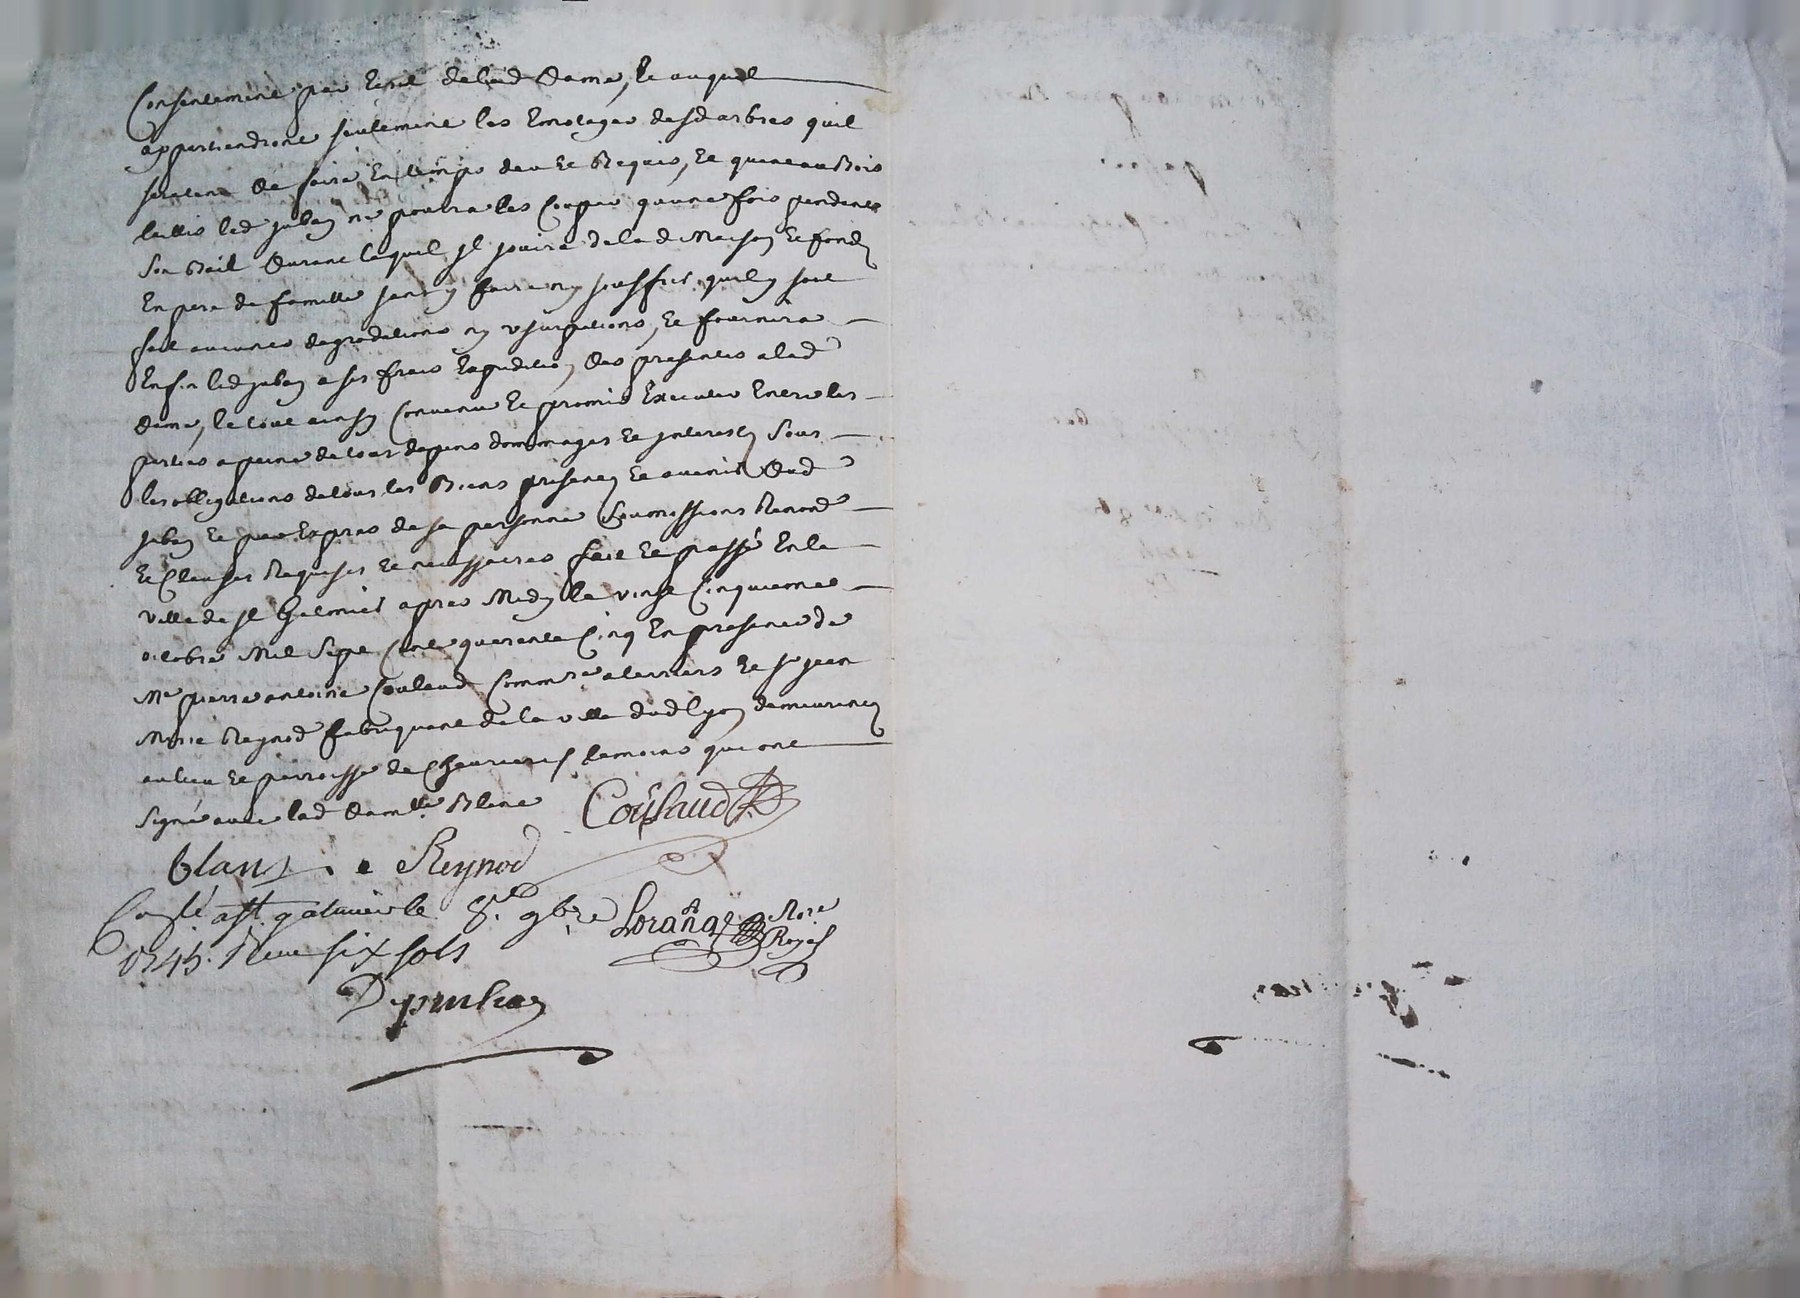 Consentement par Ecrit delad Dame, Et auquel
appartiendront seulement les Emolages desd arbres quil
sera tenu de faire En temps deu Et Requis, Et quant au Bois
taillis led juban ne pourra les Couper quune fois pendant
Son Bail Durant lequel jl jouira delad Maison Et fonds
En pere de famille sans y faire ny souffrir quil y soit
fait aucunes degradations ny usurpations, Et fournira
Enfin led juban a ses frais Expedition des presentes alad
Dame, le tout ainsy Convenu Et promis Executer Entre les
parties a peine de tous depens dommages Et jnterests Sous
les obligations de tous les Biens presents Et avenir Dud
juban Et par Expres de sa personne Soumissions Renon
Et Clauses Requises Et necessaires fait Et passé En la
ville de St Galmier apres Midy le vingt Cinquieme
octobre Mil Sept Cent quarante Cinq En presence de
Me pierre antoine Coulaud Commre a terriers Et sr jean
Marie Reynod fabriquant de la ville dud Lyon demeurants
au lieu Et parroisse de Chevrieres temoins qui ont
Signé avec lad Damlle Blanc
Coulaud
Blanc Reynod
Conlé a St galmier le 8. 9bre
1745. Reçu six sols
Notre
Royal